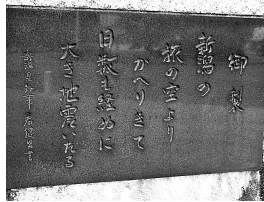 御製
新潟の
旅の空より
かへりきて
日数も経ぬに
大き地震いたる